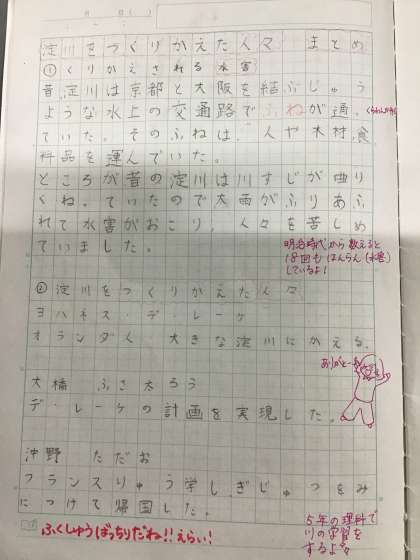 月 日( )
淀川をつくりかえた人々 まとめ
①くりかえされる水害
昔、淀川は京都と大阪を結ぶじゅう
ような水上の交通路でふねが通っ
ていた。そのふねは、人や木材、食
料品を運んでいた。
ところが昔の淀川は川すじが曲り
くねっていたので大雨がふりあふ
れて水害がおこり、人々を苦しめ
ていました。
明治時代から数えると
18回もはんらん(水害)
しているよ!
②淀川をつくりかえた人々
ヨハネス・デ・レーケ
オランダ人 大きな淀川にかえる。
ありがとー
大橋 ふさ太ろう
デ・レーケの計画を実現した。
沖野 ただお
フランスりゅう学しぎじゅつをみ
につけて帰国した。
ふくしゅうばっちりだね!!えらい!
5年の理科で
川の学習を
するよ